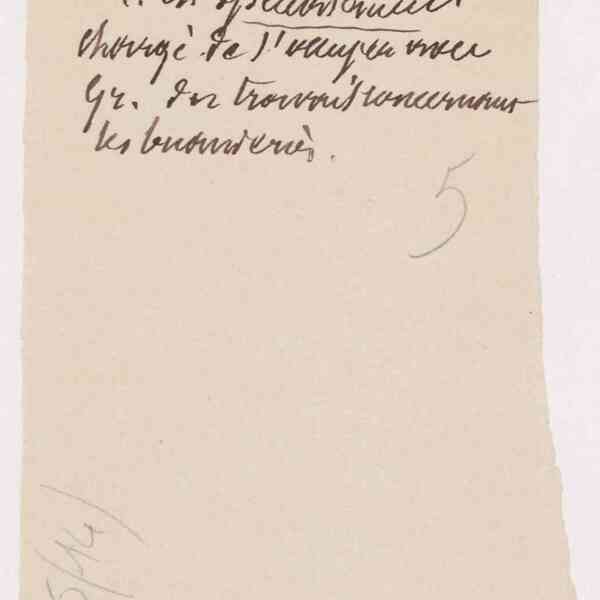 est spécialement
chargé de s'occuper avec
Gr. des travaux concernant
les
5
5/14)